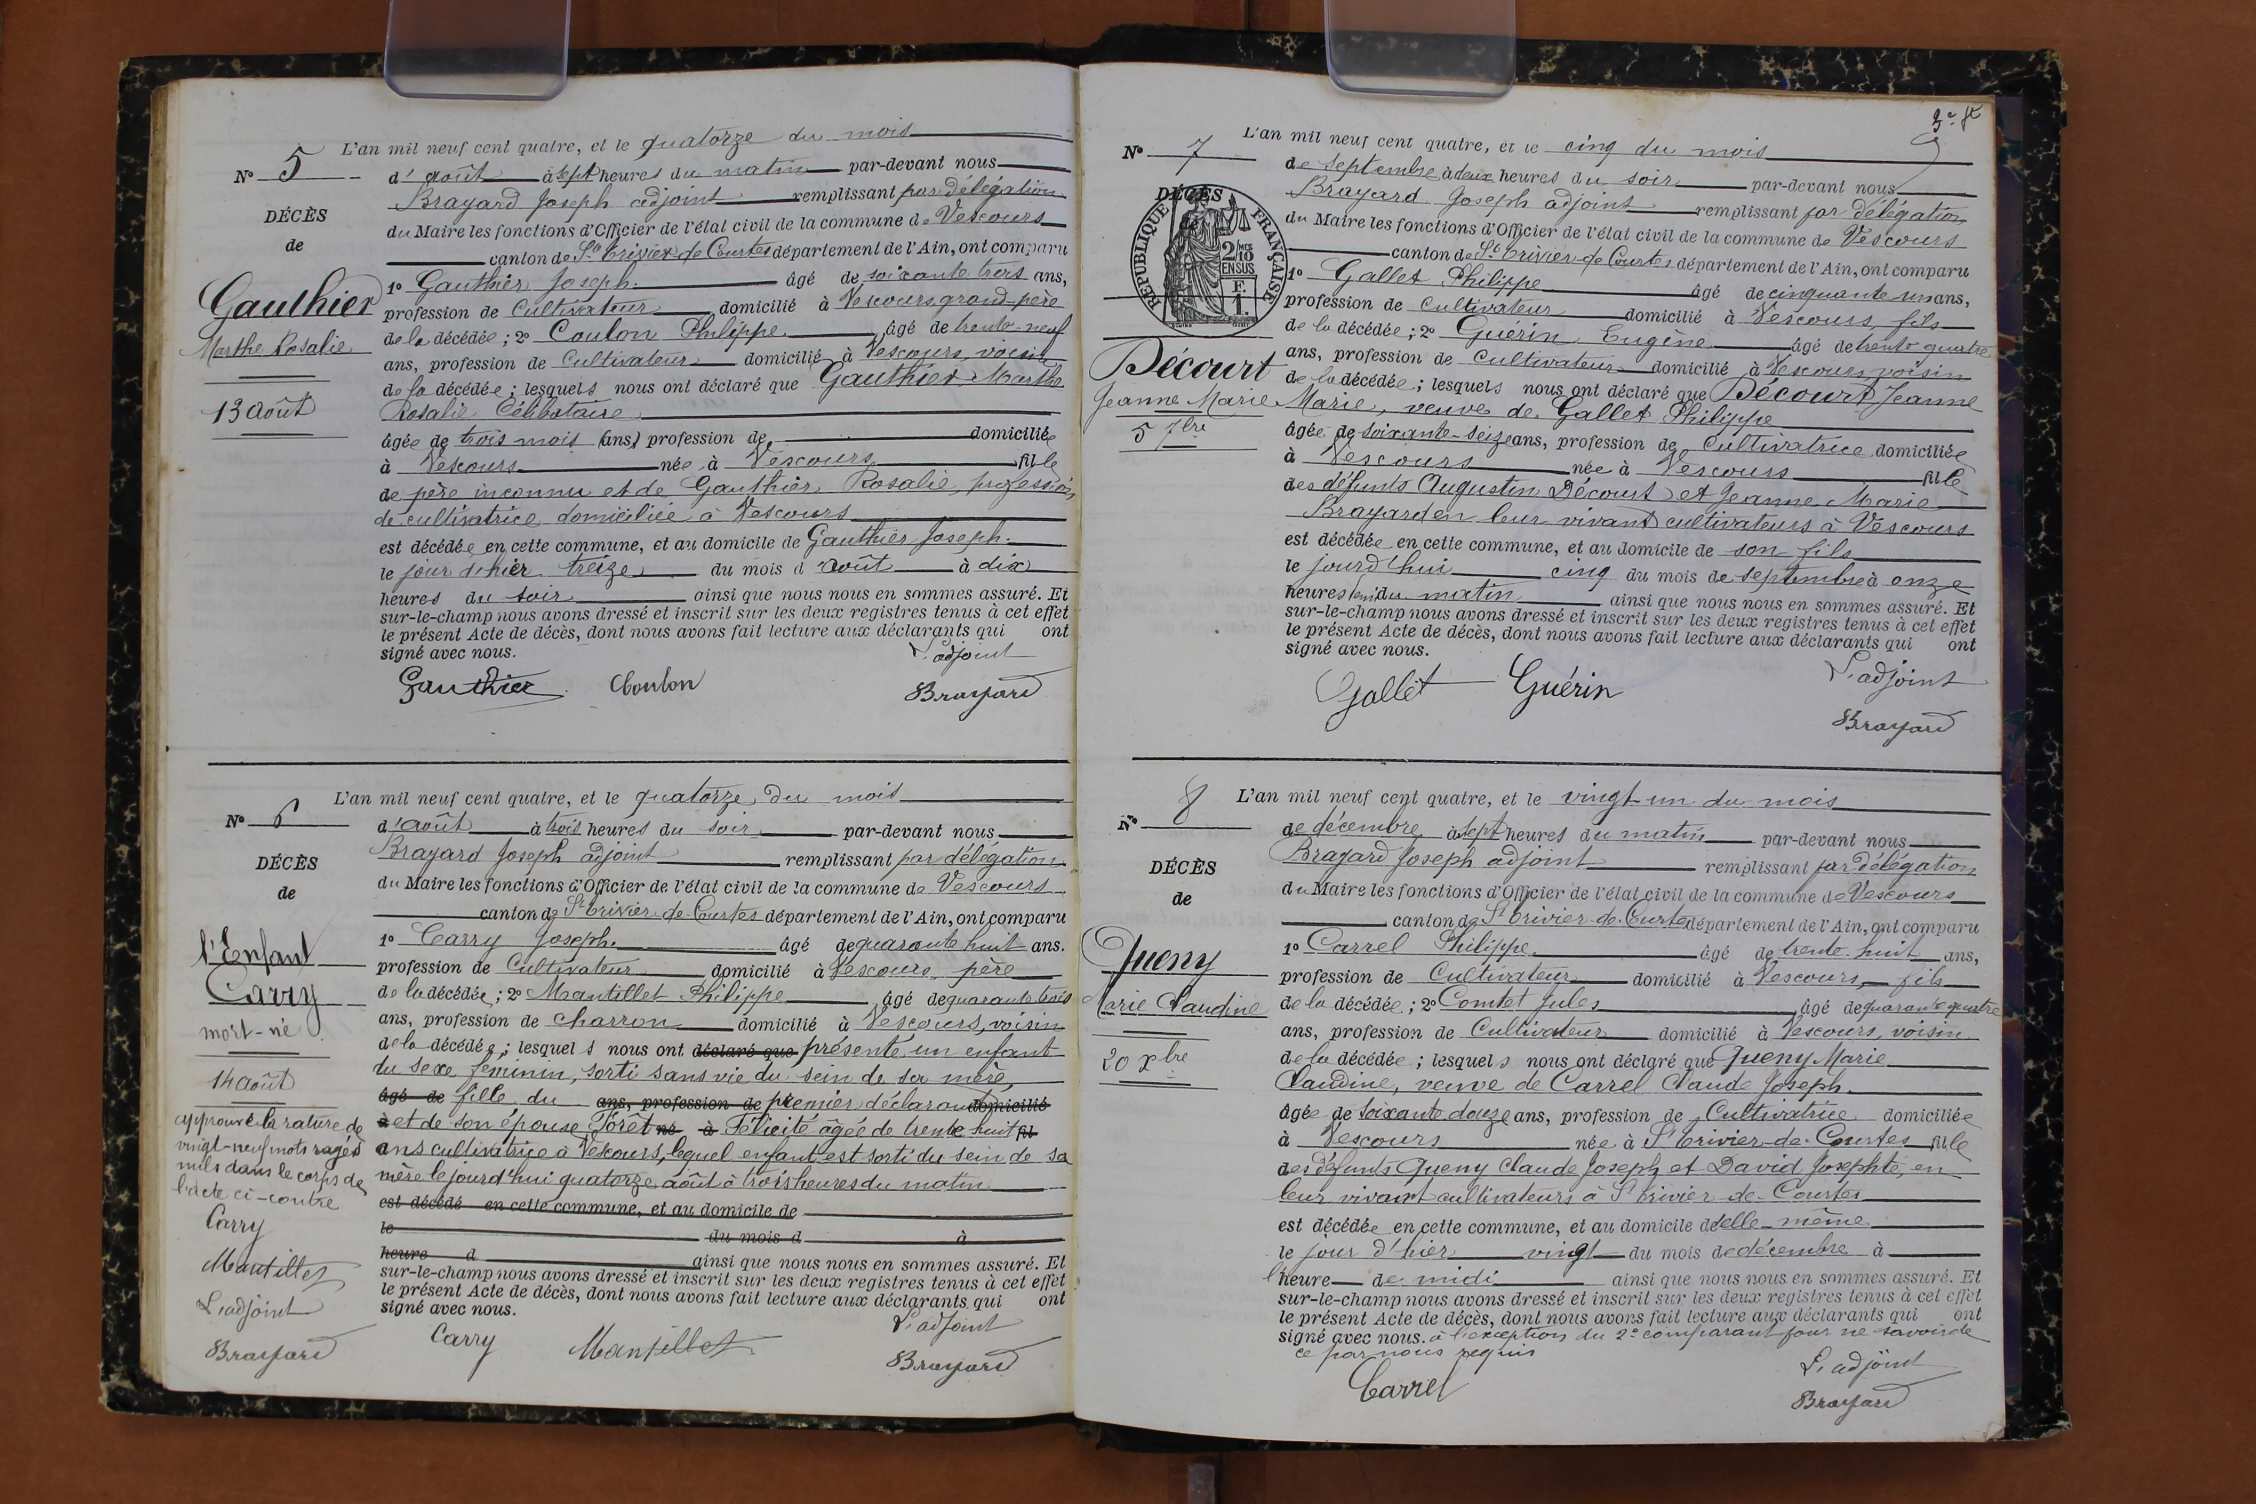 L'an mil neuf cent quatre, et le quatorze du mois
N° 5
d'août à sept heures du matin par-devant nous
Brayard Joseph adjoint remplissant par délégation
DÉCÈS
du Maire les fonctions d'Officier de l'état civil de la commune de Vescours
de
canton de St Trivier-de-Courtes département de l'Ain, ont comparu
Gauthier
1° Gauthier Joseph. âgé de soixante trois ans,
profession de Cultivateur domicilié à Vescours grand-père
Marthe Rosalie
de la décédée ; 2° Coulon Philippe âgé de trente-neuf
ans, profession de Cultivateur domicilié à Vescours, voisin
13 août
de la décédée ; lesquels nous ont déclaré que Gauthier Marthe
Rosalie Célibataire
âgée de trois mois (ans,) profession de domiciliée
à Vescours née à Vescours fille
de père inconnu et de Gauthier Rosalie, profession
de cultivatrice domiciliée à Vescours
est décédée en cette commune, et au domicile de Gauthier Joseph.
le jour d'hier treize du mois d'août à dix
heures du soir ainsi que nous nous en sommes assuré. Et
sur-le-champ nous avons dressé et inscrit sur les deux registres tenus à cet effet
le présent Acte de décès, dont nous avons fait lecture aux déclarants qui ont
signé avec nous.
L'adjoint
Gauthier Coulon Brayard
L'an mil neuf cent quatre, et le quatorze du mois
N° 6
d'août à trois heures du soir par-devant nous
Brayard Joseph adjoint remplissant par délégation
DÉCÈS
du Maire les fonctions d'Officier de l'état civil de la commune de Vescours
de
canton de St Trivier-de-Courtes département de l'Ain, ont comparu
l'Enfant
1° Carry Joseph. âgé de quarante huit ans.
profession de Cultivateur domicilié à Vescours, père
Carry
de la décédée ; 2° Mantillet Philippe âgé de quarante trois
mort-né
ans, profession de charron domicilié à Vescours, voisin
de la décédée ; lesquels nous ont déclaré que présenté un enfant
14 août
du sexe féminin, sorti sans vie du sein de sa mère,
âgé de fille du ans, profession de premier déclarant domicilié
à et de son épouse Forêt né à Félicité âgée de trente huit fil
ans cultivatrice à Vescours, lequel enfant est sorti du sein de sa
mère le jourd'hui quatorze août à trois heures du matin
est décédé en cette commune, et au domicile de
le du mois d à
heure d ainsi que nous nous en sommes assuré. Et
sur-le-champ nous avons dressé et inscrit sur les deux registres tenus à cet effet
le présent Acte de décès, dont nous avons fait lecture aux déclarants qui ont
signé avec nous.
approuvé la rature de
vingt-neuf mots rayés
nuls dans le corps de
l'acte ci-contre
Carry
Mantillet
L'adjoint
Brayard
L'adjoint
Carry Mantillet Brayard
3e ft
L'an mil neuf cent quatre, et le cinq du mois
N° 7
de septembre à deux heures du soir par-devant nous
DÉCÈS
de
RÉPUBLIQUE FRANÇAISE
2/10 MES
EN SUS
F.
1.
Brayard Joseph adjoint remplissant par délégation
du Maire les fonctions d'Officier de l'état civil de la commune de Vescours
canton de St Trivier-de-Courtes département de l'Ain, ont comparu
1° Gallet Philippe âgé de cinquante un ans,
profession de Cultivateur domicilié à Vescours, fils
de la décédée ; 2° Guérin Eugène âgé de trente quatre
Décourt
ans, profession de Cultivateur domicilié à Vescours voisin
Jeanne Marie
de la décédée ; lesquels nous ont déclaré que Décourt Jeanne
Marie, veuve de Gallet Philippe
5 7bre
âgée de soixante-seize ans, profession de Cultivatrice domiciliée
à Vescours née à Vescours fille
des défunts Augustin Décourt et Jeanne Marie
Brayard en leur vivant cultivateurs à Vescours
est décédée en cette commune, et au domicile de son fils
le jourd'hui cinq du mois de septembre à onze
heures du matin ainsi que nous nous en sommes assuré. Et
sur-le-champ nous avons dressé et inscrit sur les deux registres tenus à cet effet
le présent Acte de décès, dont nous avons fait lecture aux déclarants qui ont
signé avec nous.
L'adjoint
Gallet Guérin
Brayard
L'an mil neuf cent quatre, et le vingt-un du mois
N° 8
de décembre à sept heures du matin par-devant nous
Brayard Joseph adjoint remplissant par délégation
DÉCÈS
du Maire les fonctions d'Officier de l'état civil de la commune de Vescours
de
canton de St Trivier-de-Courtes département de l'Ain, ont comparu
Queny
1° Carrel Philippe âgé de trente-huit ans,
profession de Cultivateur domicilié à Vescours, fils
Marie Claudine
de la décédée ; 2° Comtet Jules âgé de quarante quatre
ans, profession de Cultivateur domicilié à Vescours, voisin
20 Xbre
de la décédée ; lesquels nous ont déclaré que Queny Marie
Claudine, veuve de Carrel Claude Joseph.
âgée de soixante douze ans, profession de Cultivatrice domiciliée
à Vescours née à St Trivier-de-Courtes fille
des défunts Queny Claude Joseph et David Josephte, en
leur vivant cultivateurs à St Trivier-de-Courtes
est décédée en cette commune, et au domicile d'elle-même
le jour d'hier vingt du mois de décembre à
l'heure de midi ainsi que nous nous en sommes assuré. Et
sur-le-champ nous avons dressé et inscrit sur les deux registres tenus à cet effet
le présent Acte de décès, dont nous avons fait lecture aux déclarants qui ont
signé avec nous. à l'exception du 2e comparant pour ne savoir de
ce par nous requis
L'adjoint
Carrel
Brayard